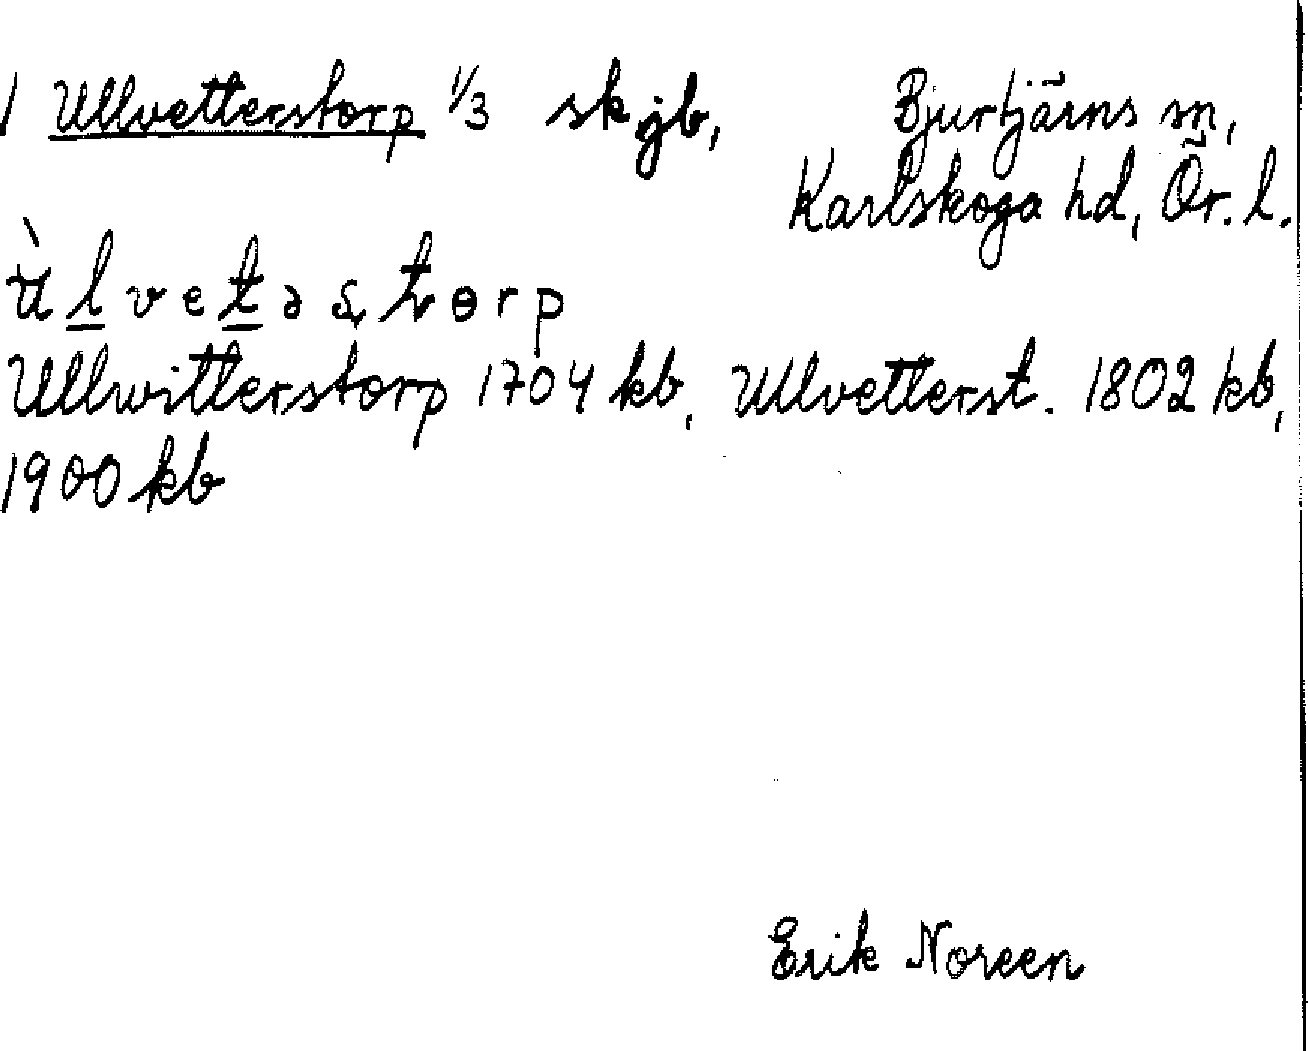 Ullvetterstorp 1/3 skjb,
Bjurtjärns sn,
Karlskoga hd, Ör. l.
Ullwitterstorp 1704 kb, Ullvetterst. 1802 kb,
1900 kb
Erik Noreen